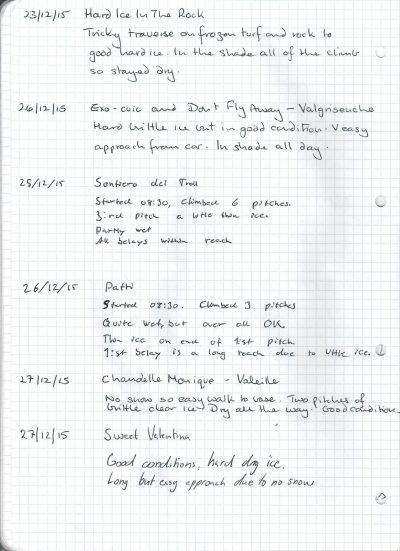 23/12/15 Hard Ice In The Rock
Tricky traverse on frozen turf and rock to
good hard ice. In the shade all of the climb
so stayed dry.
24/12/15 Exo-cuic and Don't Fly Away - Valgrisenche
Hard brittle ice but in good condition. V easy
approach from car. In shade all day.
25/12/15 Sentiero dei Troll
Started 08:30, climbed 6 pitches.
3:ird pitch a little thin ice.
Partly wet
All belays within reach
26/12/15 Patti
Started 08:30. Climbed 3 pitches
Quite wet, but over all OK.
Thin ice on end of 1:st pitch
1:st belay is a long reach due to little ice.
27/12/15 Chandelle Monique - Valeille
No snow so easy walk to base. Two pitches of
brittle clear ice. Dry all the way. Good condition.
27/12/15 Sweet Valentina
Good conditions, hard dry ice.
Long but easy approach due to no snow